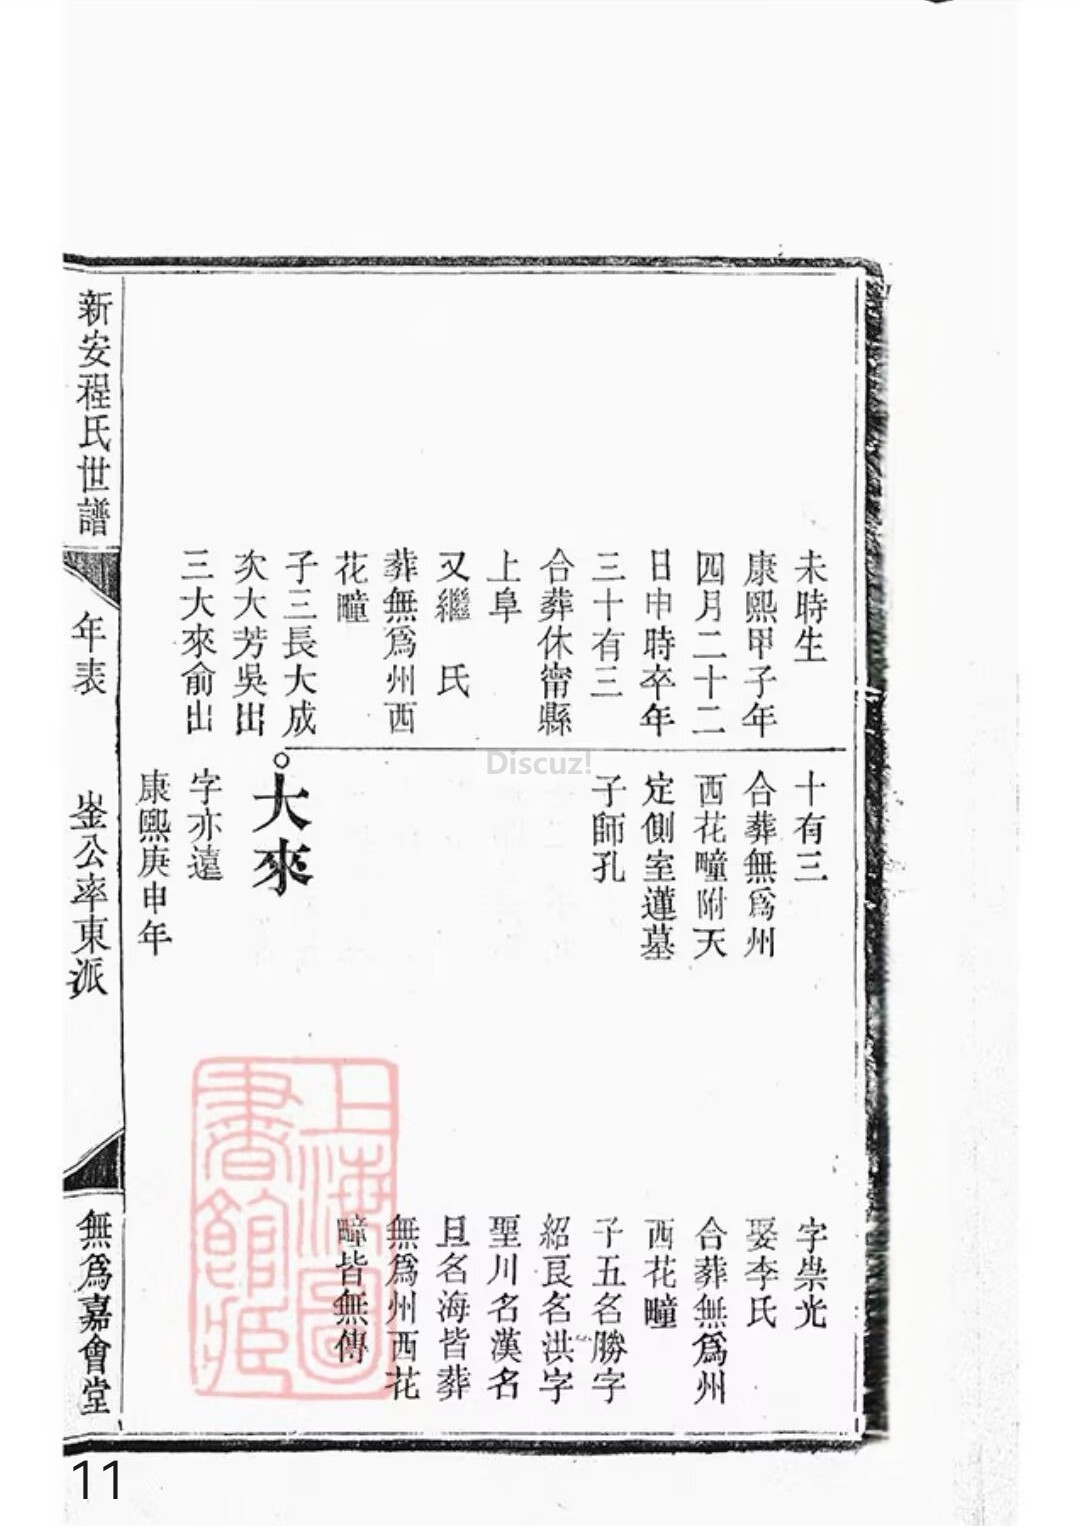 未時生
康熙甲子年
四月二十二
日申時卒年
三十有三
合葬休甯縣
上阜
又繼 氏
葬無爲州西
花疃
子三長大成
次大芳吳出
三大來俞出
十有三
合葬無爲州
西花疃附天
定側室蓮墓
子師孔
大來
字亦遠
康熙庚申年
字崇光
娶李氏
合葬無爲州
西花疃
子五名勝字
紹良名洪字
聖川名漢名
旦名海皆葬
無爲州西花
疃皆無傳
新安程氏世譜
年表
崟公率東派
無爲嘉會堂
上海圖
書館藏
Discuz!
11